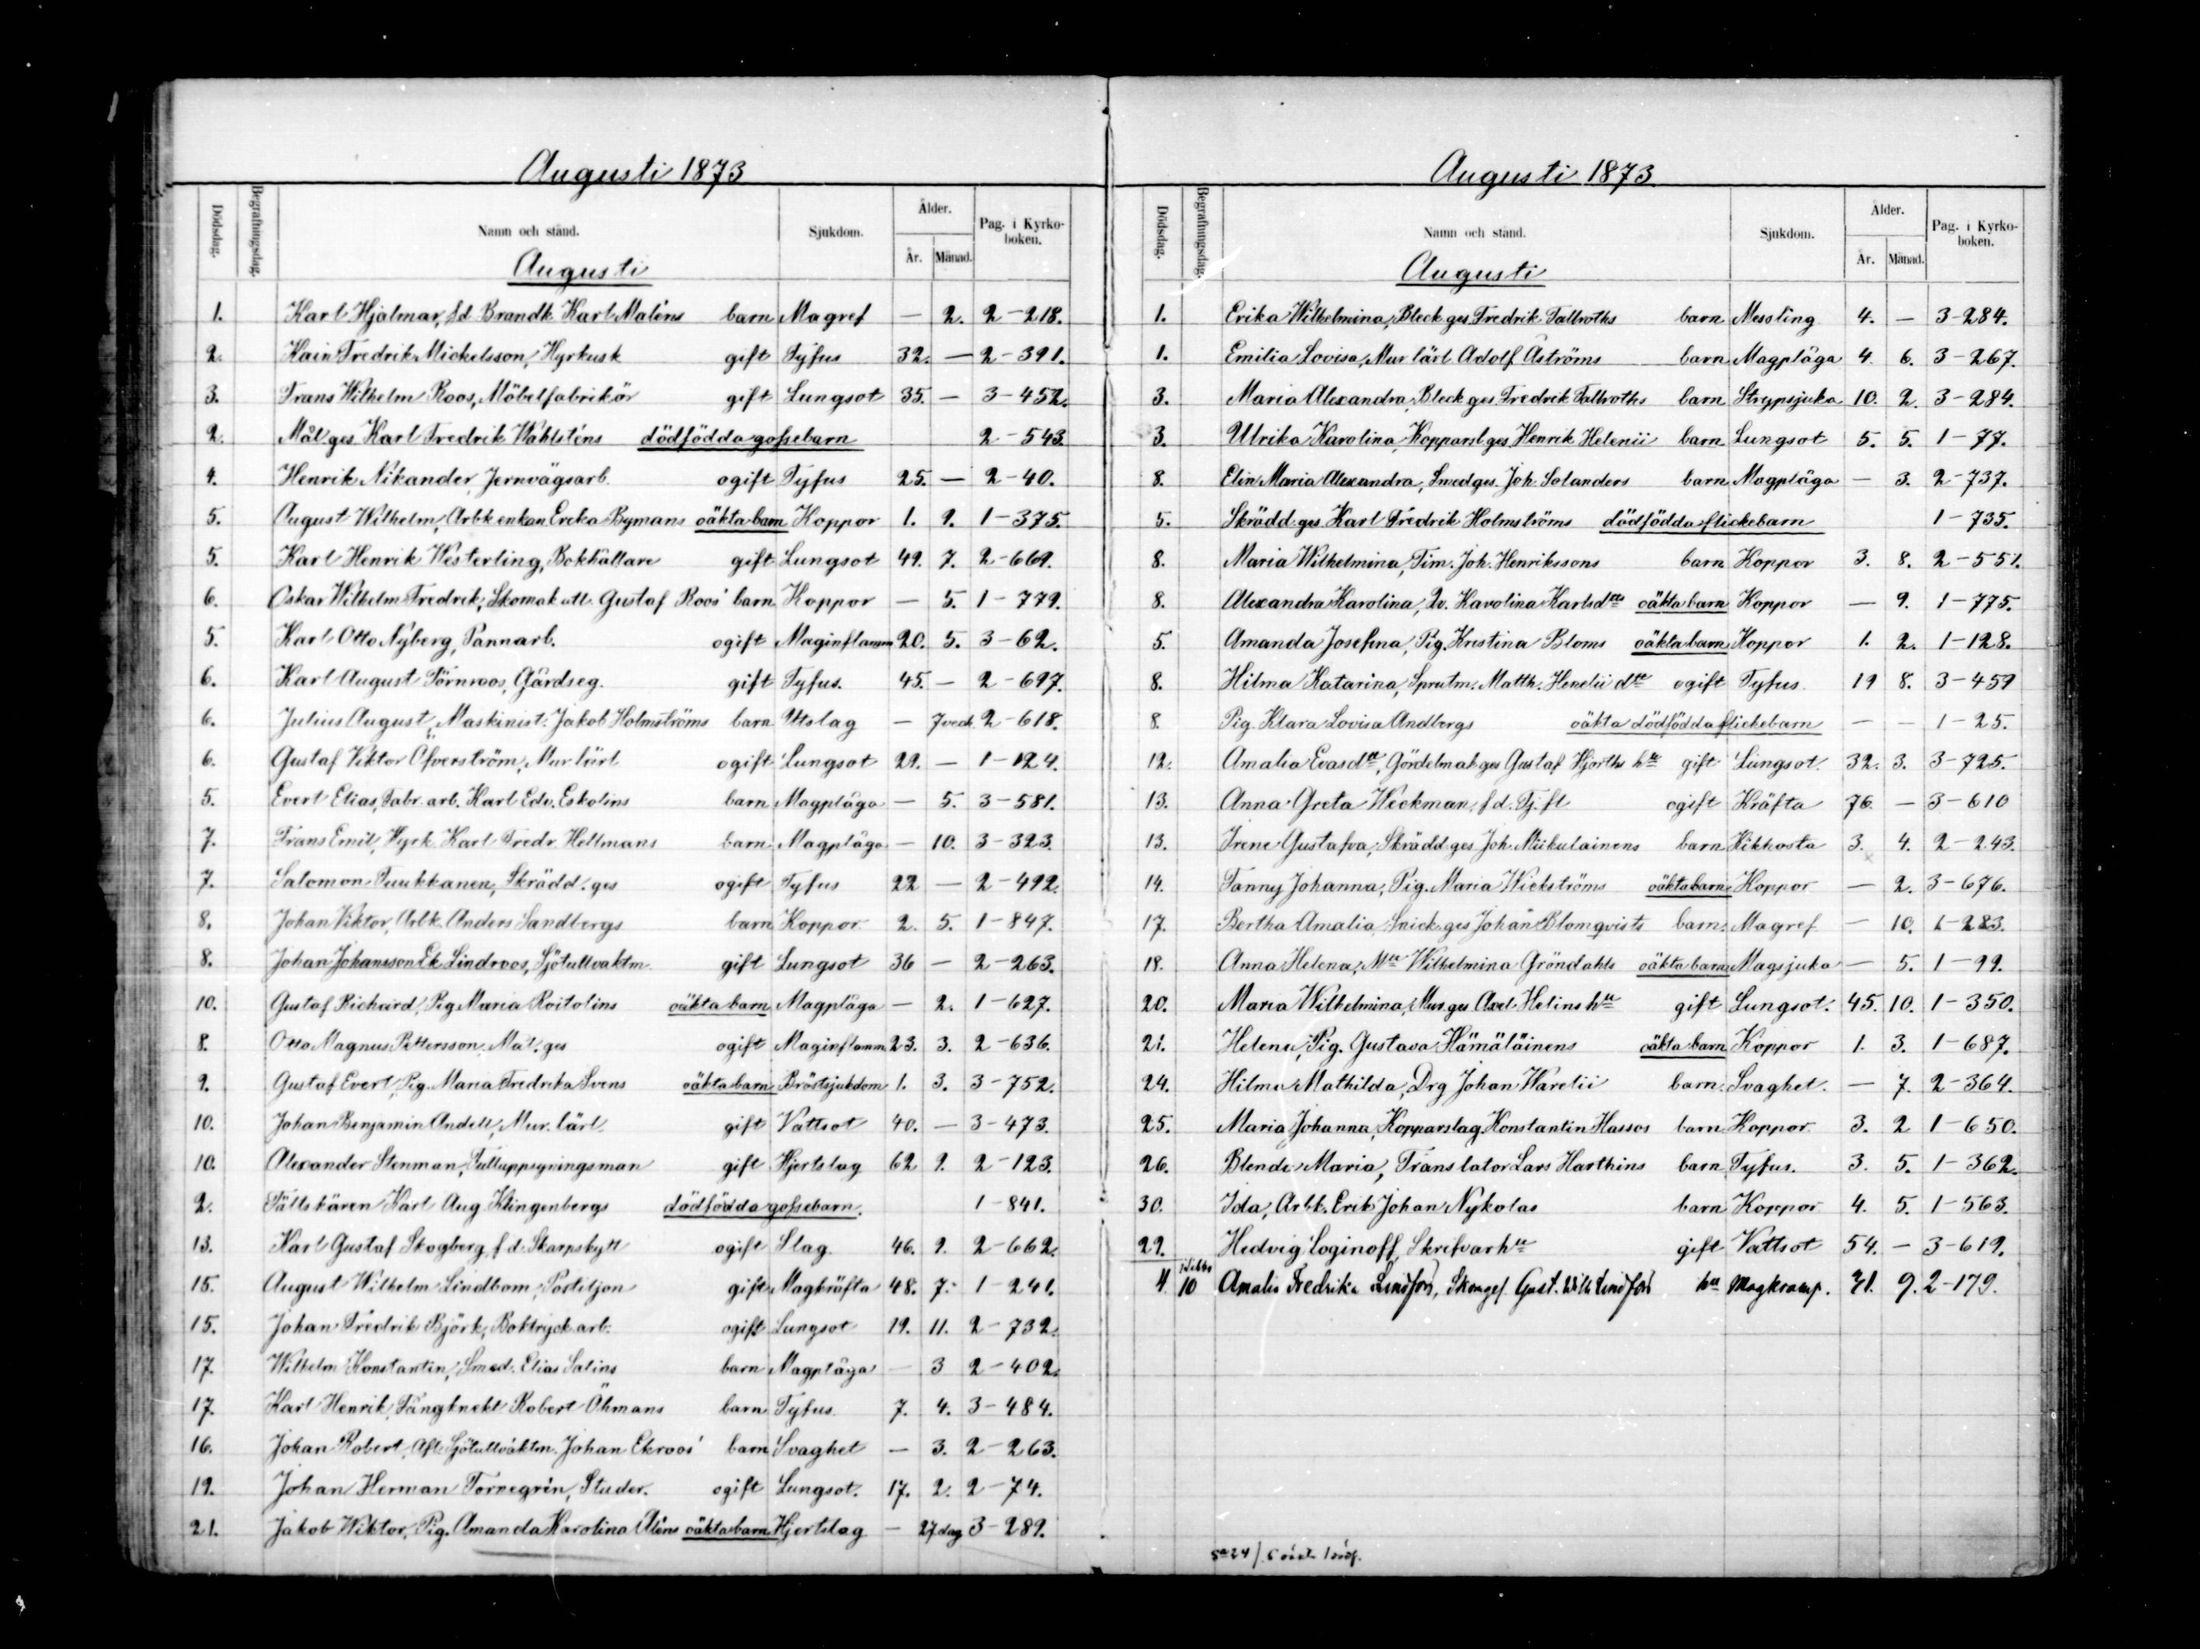 Augusti 1873
Dödsdag. Begrafningsdag. Namn och stånd. Sjukdom. Ålder. År. Månad. Pag. i Kyrkoboken.
Augusti
1. Karl Hjalmar, f.d. Brandk. Karl Maléns barn Magref — 2. 2-218.
2. Kain Fredrik Mickelsson, Hyrkusk gift Tyfus 32. — 2-391.
3. Frans Wilhelm Roos, Möbelfabrikör gift Lungsot 35. — 3-452.
2. Mål ges Karl Fredrik Wahlsténs dödfödda gossebarn 2-543.
4. Henrik Nikander, Jernvägsarb. ogift Tyfus 25. — 2-40.
5. August Wilhelm, Arbk enkan Ericka Bymans oäkta barn Koppor 1. 9. 1-375.
5. Karl Henrik Westerling, Bokhållare gift Lungsot 49. 7. 2-669.
6. Oskar Wilhelm Fredrik, Skomak ått. Gustaf Roos' barn Koppor — 5. 1-779.
5. Karl Otto Nyberg, Pannarb. ogift Maginflamm 20. 5. 3-62.
6. Karl August Törnroos, Gårdseg. gift Tyfus. 45. — 2-697.
6. Julius August, Maskinist. Jakob Holmströms barn Utslag — 7 veck. 2-618.
6. Gustaf Viktor Öfverström, Mur lärl ogift Lungsot 22. — 1-124.
5. Evert Elias, Fabr. arb. Karl Edv. Eskolins barn Magplåga — 5. 3-581.
7. Frans Emil, Hyrk. Karl Fredr. Hellmans barn Magplåga — 10. 3-323.
7. Salomon Puukkanen, Skrädd. ges ogift Tyfus 22 — 2-492.
8. Johan Viktor, Arbk. Anders Sandbergs barn Koppor 2. 5. 1-847.
8. Johan Johansson Ek Lindroos, Sjötullvaktm. gift Lungsot 36 — 2-263.
10. Gustaf Richard, Pig. Maria Roitolins oäkta barn Magplåga — 2. 1-627.
8. Otto Magnus Pettersson, Mål. ges ogift Maginflamm 23. 3. 2-636.
9. Gustaf Evert, Pig. Maria Fredrika Svens oäkta barn Bröstsjukdom 1. 3. 3-752.
10. Johan Benjamin Andell, Mur. lärl. gift Vattsot 40. — 3-473.
10. Alexander Stenman, Tulluppsyningsman gift Hjertslag 62 9. 2-123.
2. Fältskären Karl Aug. Klingenbergs dödfödda gossebarn. 1-841.
13. Karl Gustaf Skogberg, f.d. Skarpskytt ogift Slag. 46. 9. 2-662.
15. August Wilhelm Lindbom, Postiljon gift Magkräfta 48. 7. 1-241.
15. Johan Fredrik Björk, Boktryck. arb. ogift Lungsot 19. 11. 2-732.
17. Wilhelm Konstantin, Smed. Elias Salins barn Magplåga — 3 2-402.
17. Karl Henrik, Fångknekt Robert Öhmans barn Tyfus. 7. 4. 3-484.
16. Johan Robert, Afl. Sjötullvaktm. Johan Ekroos' barn Svaghet — 3. 2-263.
19. Johan Herman Fornegrin, Studer. ogift Lungsot. 17. 2. 2-74.
21. Jakob Wiktor, Pig. Amanda Karolina Aléns oäkta barn Hjertslag — 27 dag 3-289.
Augusti 1873
Dödsdag. Begrafningsdag. Namn och stånd. Sjukdom. Ålder. År. Månad. Pag. i Kyrkoboken.
Augusti
1. Erika Wilhelmina, Bleck ges Fredrik Tallroths barn Messling 4. — 3-284.
1. Emilia Lovisa, Mur lärl Adolf Åströms barn Magplåga 4. 6. 3-267.
3. Maria Alexandra, Bleck ges. Fredrik Tallroths barn Strypsjuka 10. 2. 3-284.
3. Ulrika Karolina, Kopparsl ges. Henrik Helenii barn Lungsot 5. 5. 1-77.
8. Elin Maria Alexandra, Smed ges. Joh. Solanders barn Magplåga — 3. 2-737.
5. Skrädd ges. Karl Fredrik Holmströms dödfödda flickebarn 1-735.
8. Maria Wilhelmina, Tim. Joh. Henrikssons barn Koppor 3. 8. 2-551.
8. Alexandra Karolina, Qv. Karolina Karlsdtrs oäkta barn Koppor — 9. 1-775.
5. Amanda Josefina, Pig. Kristina Bloms oäkta barn Koppor 1. 2. 1-128.
8. Hilma Katarina, Sprutm. Matth. Henelii dtr ogift Tyfus 19 8. 3-459
8. Pig. Klara Lovisa Andbergs oäkta dödfödda flickebarn — — 1-25.
12. Amalia Evasdtr, Gördelmak ges Gustaf Hjorths hu gift Lungsot. 32. 3. 3-725.
13. Anna Greta Weckman, f.d. Tj. fl ogift Kräfta 76. — 3-610
13. Irene Gustafva, Skrädd ges Joh. Miikulainens barn Kikhosta 3. 4. 2-243.
14. Fanny Johanna, Pig. Maria Wickströms oäkta barn Koppor — 2. 3-676.
17. Bertha Amalia, Snick. ges Johan Blomqvists barn. Magref — 10. 1-283.
18. Anna Helena, Mll Wilhelmina Gröndahls oäkta barn Magsjuka — 5. 1-99.
20. Maria Wilhelmina, Mur. ges Axel Helins hu gift Lungsot. 45. 10. 1-350.
21. Helena, Pig. Gustava Hämäläinens oäkta barn Koppor 1. 3. 1-687.
24. Hilma Mathilda, Drg Johan Warelii barn. Svaghet. — 7. 2-364.
25. Maria Johanna, Kopparslag. Konstantin Hassos barn Koppor. 3. 2 1-650.
26. Blenda Maria, Translator Lars Harthins barn Tyfus. 3. 5. 1-362.
30. Ida, Arbk. Erik Johan Nykolas barn Koppor 4. 5. 1-563.
29. Hedvig Loginoff, Skrifvarhu gift Vattsot 54. — 3-619.
4 10 Amalia Fredrika Lindfors, Skomges. Gust. Wilh. Lindfors hu Magkramp. 31. 9. 2-179.